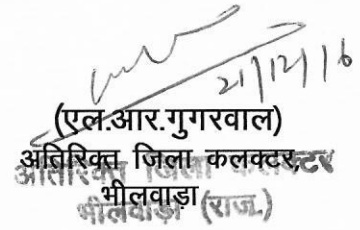 21/12/16
(एल.आर.गुगरवाल)
अतिरिक्त जिला कलक्टर,
अतिरिक्त जिला कलक्टर
भीलवाड़ा
भीलवाड़ा (राज.)